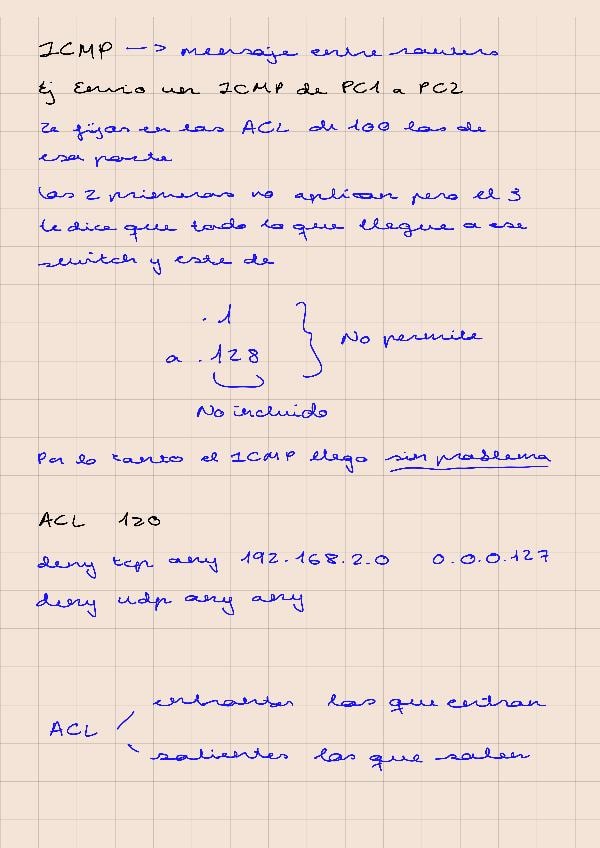 ICMP --> mensaje entre routers
Ej Envio un ICMP de PC1 a PC2
Te fijas en las ACL de 100 las de
esa parte
Las 2 primeras no aplican pero el 3
te dice que todo lo que llegue a ese
switch y este de
.1
a .128
} No permite
No incluido
Por lo tanto el ICMP llego sin problema
ACL 120
deny tcp any 192.168.2.0 0.0.0.127
deny udp any any
entrantes las que entran
ACL
salientes las que salen